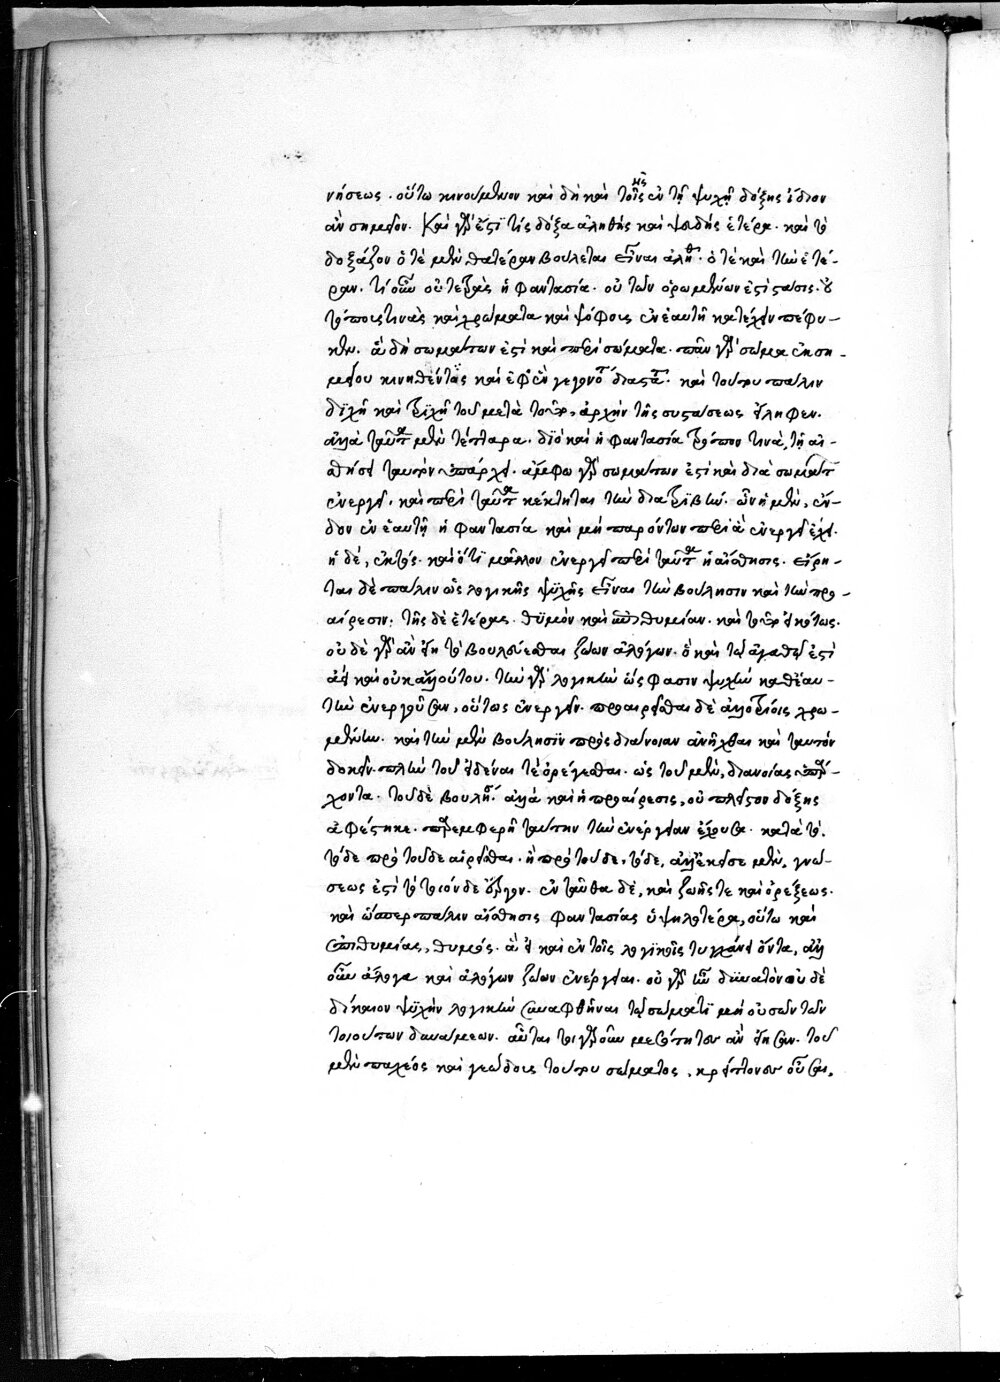 νήσεως. οὕτω κινούμενον καὶ δὴ καὶ τῆς ἐν τῇ ψυχῇ δόξης ἴδιον
ἂν σημεῖον. Καὶ γάρ ἐστί τίς δόξα ἀληθὴς καὶ ψευδὴς ἑτέρα. καὶ τὸ
δοξάζον ὁτὲ μὲν θατέραν βούλεται εἶναι ἀληθῆ. ὁτὲ καὶ τὴν ἑτέ-
ραν. τί οὖν οὐ τετρὰς ἡ φαντασία. οὐ τῶν ὁρωμένων ἐστὶ στάσις. οὐ
τύπους τινὰς καὶ χρώματα καὶ ψόφους ἐν ἑαυτῇ κατέχειν πέφυ-
κεν. ἃ δὴ σωμάτων ἐστὶ καὶ περὶ σώματα. πᾶν γὰρ σῶμα ἐκ ση-
μείου κινηθέντος καὶ ἐφ' ἓν γεγονὸς διάστημα. καὶ τούτου πάλιν
διχῇ καὶ τριχῇ τοῦ μετὰ τοῦτο, ἀρχὴν τῆς συστάσεως εἴληφεν.
ἀλλὰ ταῦτα μὲν τέτταρα. διὸ καὶ ἡ φαντασία τρόπον τινὰ, τῇ αἰ-
σθήσει ταυτὸν ὑπάρχει. ἄμφω γὰρ σωμάτων ἐστὶ καὶ διὰ σωμάτων
ἐνεργεῖ. καὶ περὶ ταῦτα κέκτηται τὴν διατριβήν. ὧν ἡ μὲν, ἔν-
δον ἐν ἑαυτῇ ἡ φαντασία καὶ μὴ παρόντων περὶ ἃ ἐνεργεῖ ἔχει.
ἡ δὲ, ἐκτός. καὶ ὅτι μᾶλλον ἐνεργεῖ περὶ ταῦτα ἡ αἴσθησις. εἴρη-
ται δὲ πάλιν ὡς λογικῆς ψυχῆς εἶναι τὴν βούλησιν καὶ τὴν προ-
αίρεσιν. τῆς δὲ ἑτέρας. θυμὸν καὶ ἐπιθυμίαν. καὶ τοῦτο εἰκότως.
οὐδὲ γὰρ ἂν εἴη τὸ βουλεύεσθαι ζώων ἀλόγων. ὃ καὶ τῷ ἀγαθῷ ἐστὶ
ἀεὶ καὶ οὐκ ἄλλου του. τὴν γὰρ λογικὴν ὥς φασιν ψυχὴν καθ' ἑαυ-
τὴν ἐνεργοῦσαν, οὕτως ἐνεργεῖν. προαιρεῖσθαι δὲ ἀλλοτρίοις χρω-
μένην. καὶ τὴν μὲν βούλησιν πρὸς διάνοιαν ἀνῆχθαι καὶ ταυτὸν
δοκεῖν. πλὴν τοῦ εἰδέναι τὲ ὀρέγεσθαι. ὡς τοῦ μὲν, διανοίας ὑπάρ-
χοντα. τοῦ δὲ βουλήσεως. ἀλλὰ καὶ ἡ προαίρεσις, οὐ πλεῖστον δόξης
ἀφέστηκε. παρεμφερῆ ταύτην τὴν ἐνέργειαν ἔχουσα. κατὰ τὸ,
τόδε πρὸ τοῦδε αἱρεῖσθαι. ἢ πρὸ τοῦδε, τόδε, ἀλλ' ἐκεῖσε μὲν, γνώ-
σεως ἐστὶ τὸ τοιόνδε ἔργον. ἐνταῦθα δὲ, καὶ ζωῆς τε καὶ ὀρέξεως.
καὶ ὥσπερ πάλιν αἴσθησις φαντασίας ὑψηλοτέρα, οὕτω καὶ
ἐπιθυμίας, θυμός. ἃ εἰ καὶ ἐν τοῖς λογικοῖς τυγχάνει ὄντα, ἀλλ'
οὖν ἄλογα καὶ ἀλόγων ζώων ἐνέργειαι. οὐ γὰρ ἦν δυνατὸν οὐδὲ
δίκαιον ψυχὴν λογικὴν συναφθῆναι τῷ σώματι μὴ οὐσῶν τῶν
τοιούτων δυνάμεων. αὗται τοιγαροῦν μεσότης ἂν εἴησαν. τοῦ
μὲν παχέος καὶ γεώδους τούτου σώματος, κρείττονες οὖσαι.